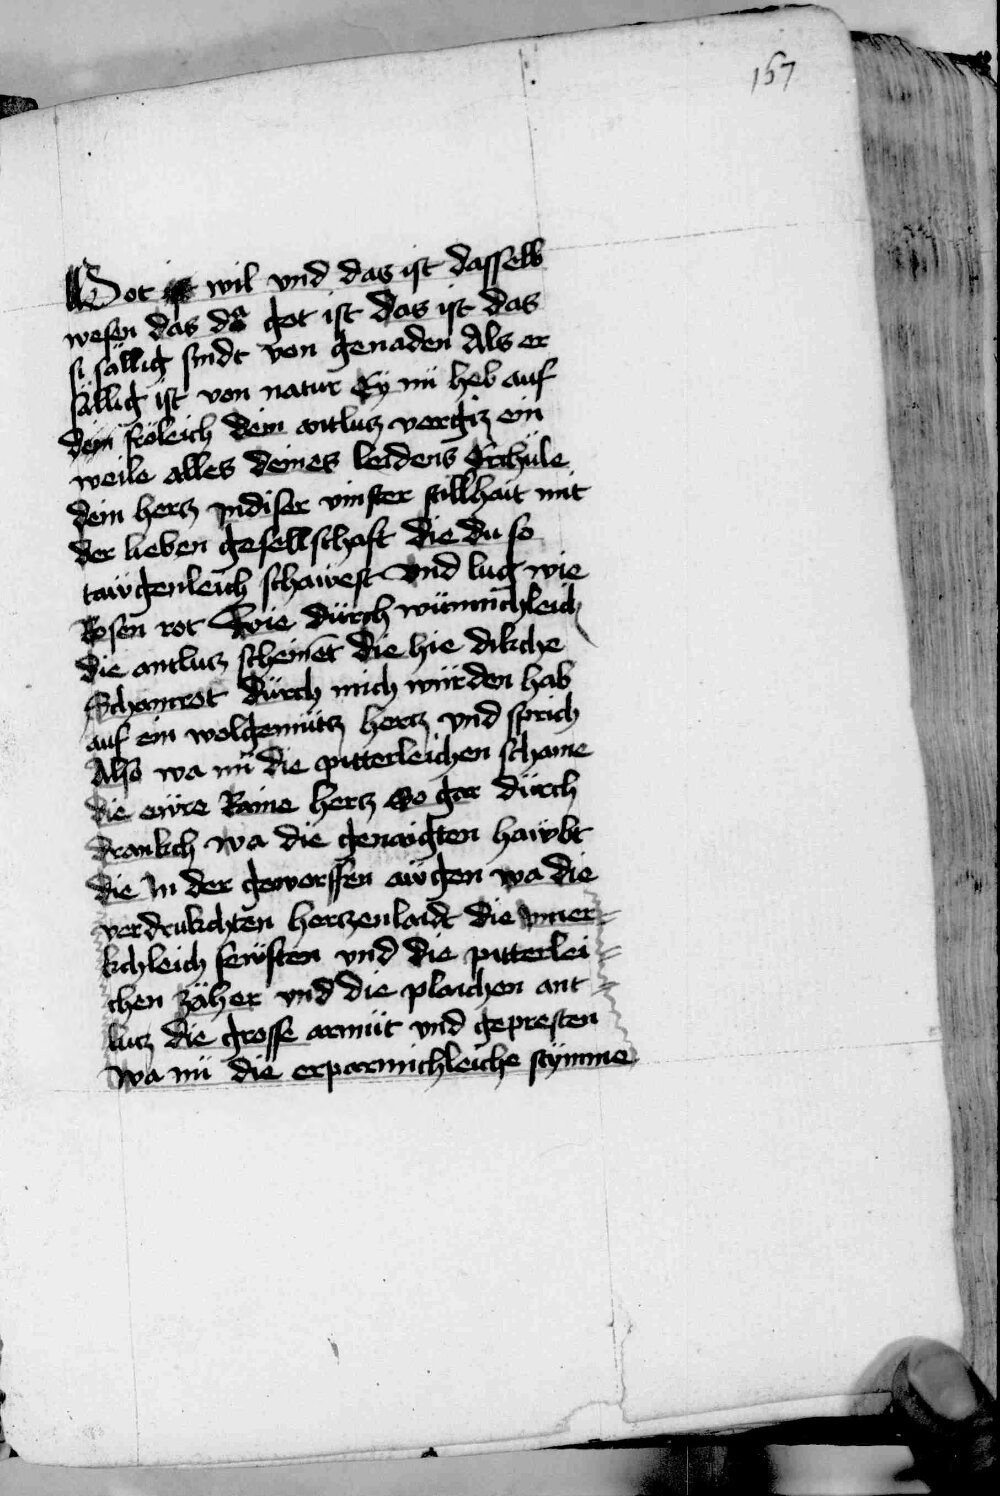 167
Got wil vnd das ist dasselb
wesen das da got ist das ist das
si sällig sindt von genaden Als er
sällig ist von natur Ey nü heb auf
dein fröleich dein antlucz vergiz ein
weile alles deines leidens Erchüle
dein hercz Indiser vinster stillhait mit
der lieben gesellschaft die du so
tawgenleich schawest vnd lug wie
Rosen rot wie dürch wünnichleich
die antlucz scheinet die hie dikche
Schamrot dürch mich würden hab
auf ein wolgemütz hercz vnd sprich
Also wa nü die pitterleichen schame
die ewre Raine hercz So gar dürch
drankch wa die genaigten hawbt
die in der geworffen awgen wa die
verdrukchten herczenlaidt die inner=
kchleich sewften vnd die pitterlei=
chen zäher vnd die plaichen ant=
lucz die grosse armüt vnd gepresten
wa nü die erparmichleiche stymme